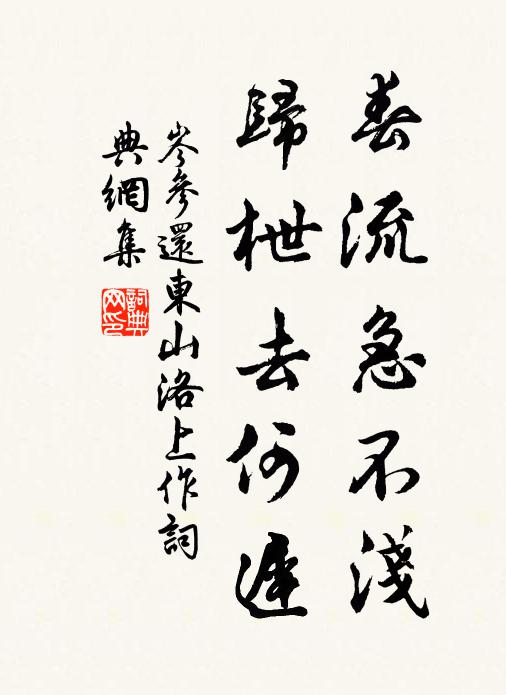 春流急不淺
歸枻去何遲
岑參還東山洛上作詞
典網集
詞典網印